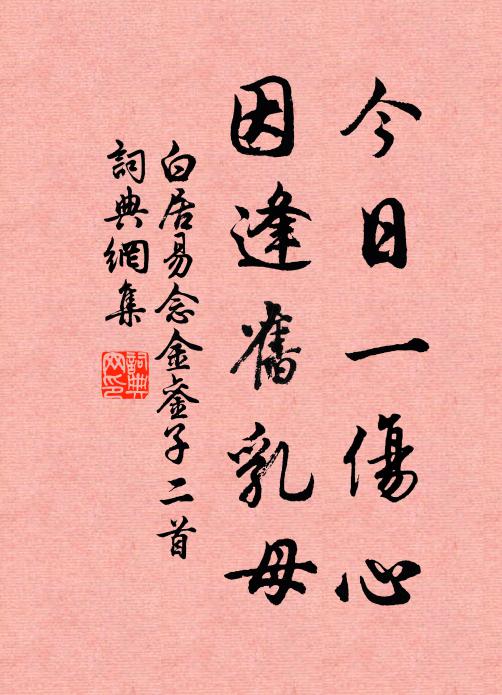 今日一傷心
因逢舊乳母
白居易念金鑾子二首
詞典網集
詞典網印